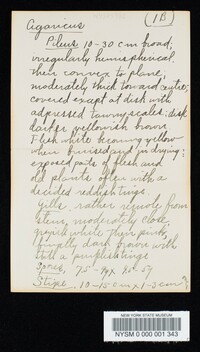 (1B)
Agaricus
Pileus 10-30 cm broad,
irregularly hemispherical
then convex to plane,
moderately thick toward center;
covered except at disk with
adpressed tawny scales; disk
darker yellowish brown
Flesh white becoming yellow
when bruised and in drying;
exposed parts of flesh and
old plants often with a
decided reddish tinge.
Gills, rather remote from
stem, moderately close,
grayish white then pink,
finally dark brown with
a purplish tinge
Spores,
Stipe 10-15 cm x 1-3 cm
NEW YORK STATE MUSEUM
NYSM 0 000 001 343